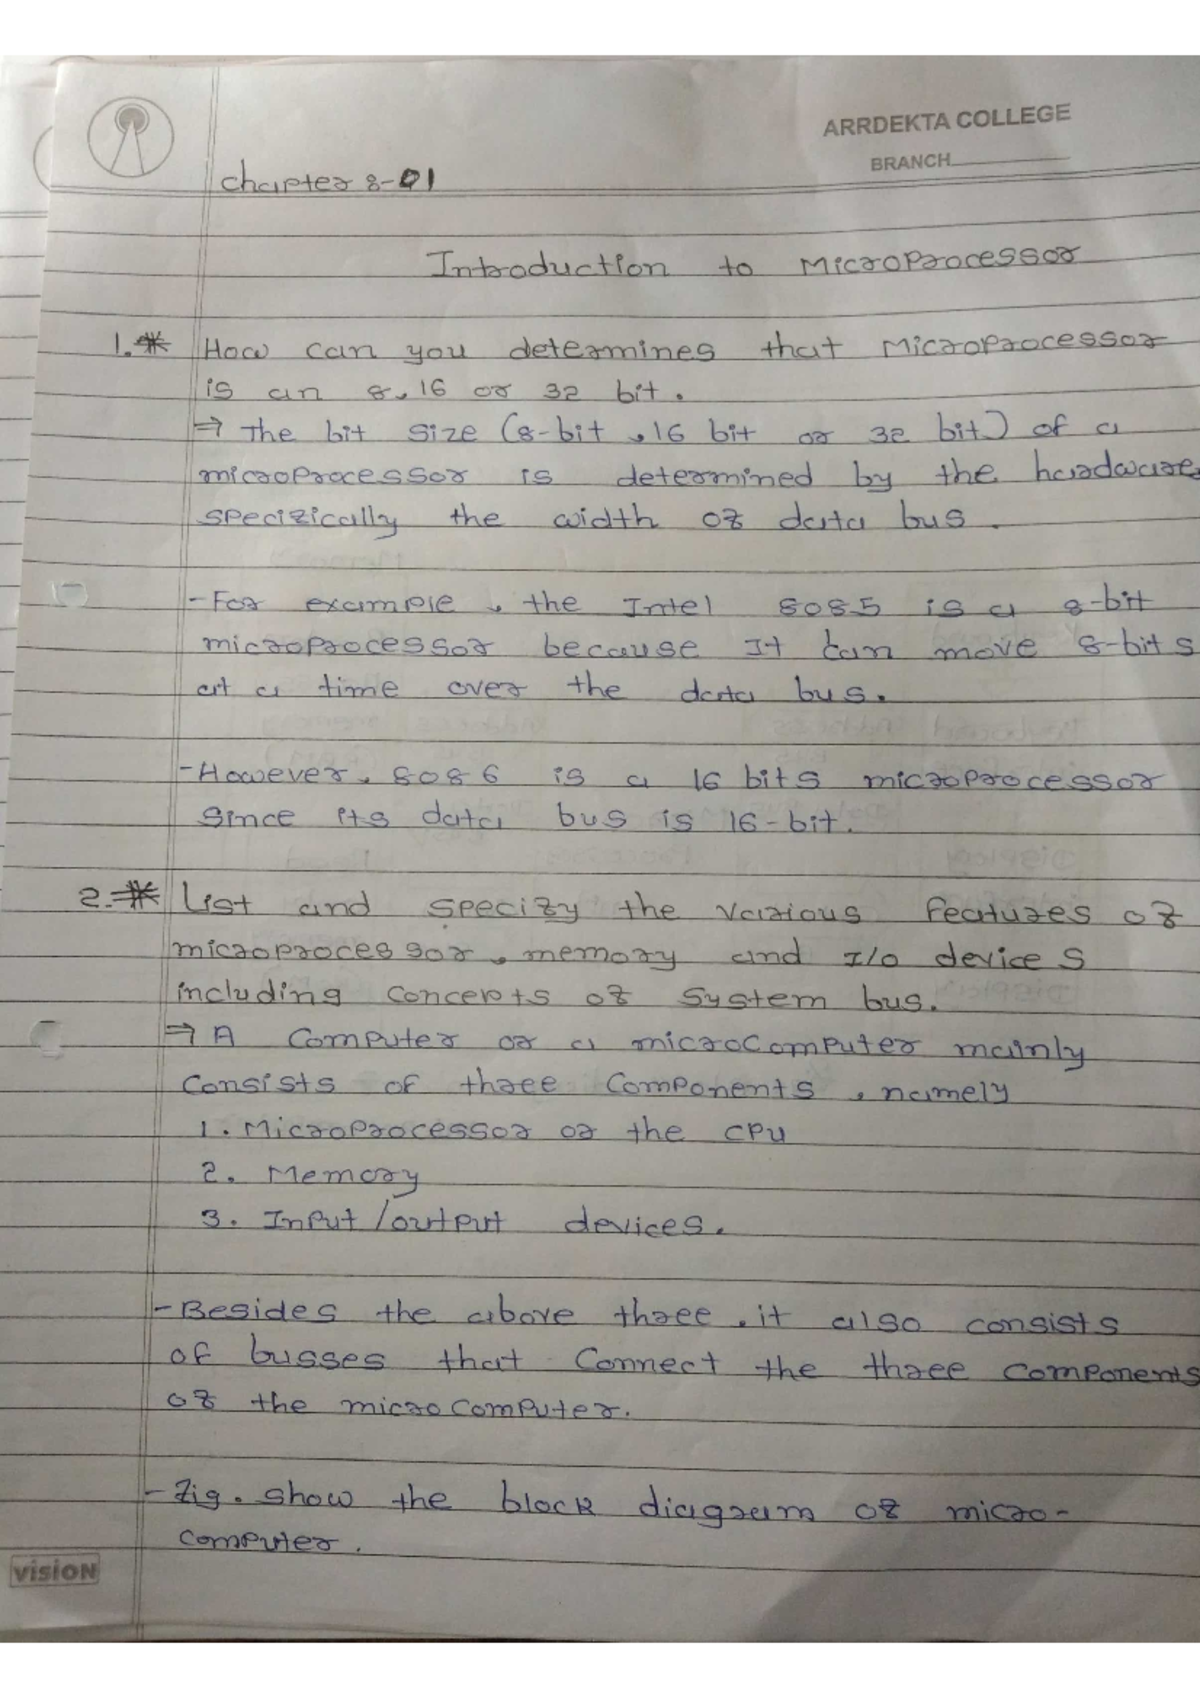 ARRDEKTA COLLEGE
BRANCH
Chapter 8-01
Introduction to Microprocessor
1.* How can you determines that Microprocessor
is an 8, 16 or 32 bit.
⇒ The bit size (8-bit, 16 bit or 32 bit) of a
microprocessor is determined by the hardware,
specifically the width of data bus.
- For example, the Intel 8085 is a 8-bit
microprocessor because It can move 8-bits
at a time over the data bus.
- However, 8086 is a 16 bits microprocessor
Since its data bus is 16-bit.
2.* List and specify the various features of
microprocessor, memory and I/O devices
including Concepts of System bus.
⇒ A Computer or a microcomputer mainly
Consists of three Components, namely
1. Microprocessor or the CPU
2. Memory
3. Input/output devices.
- Besides the above three, it also consists
of busses that Connect the three components
of the micro computer.
- Fig. show the block diagram of micro-
computer.
visioN